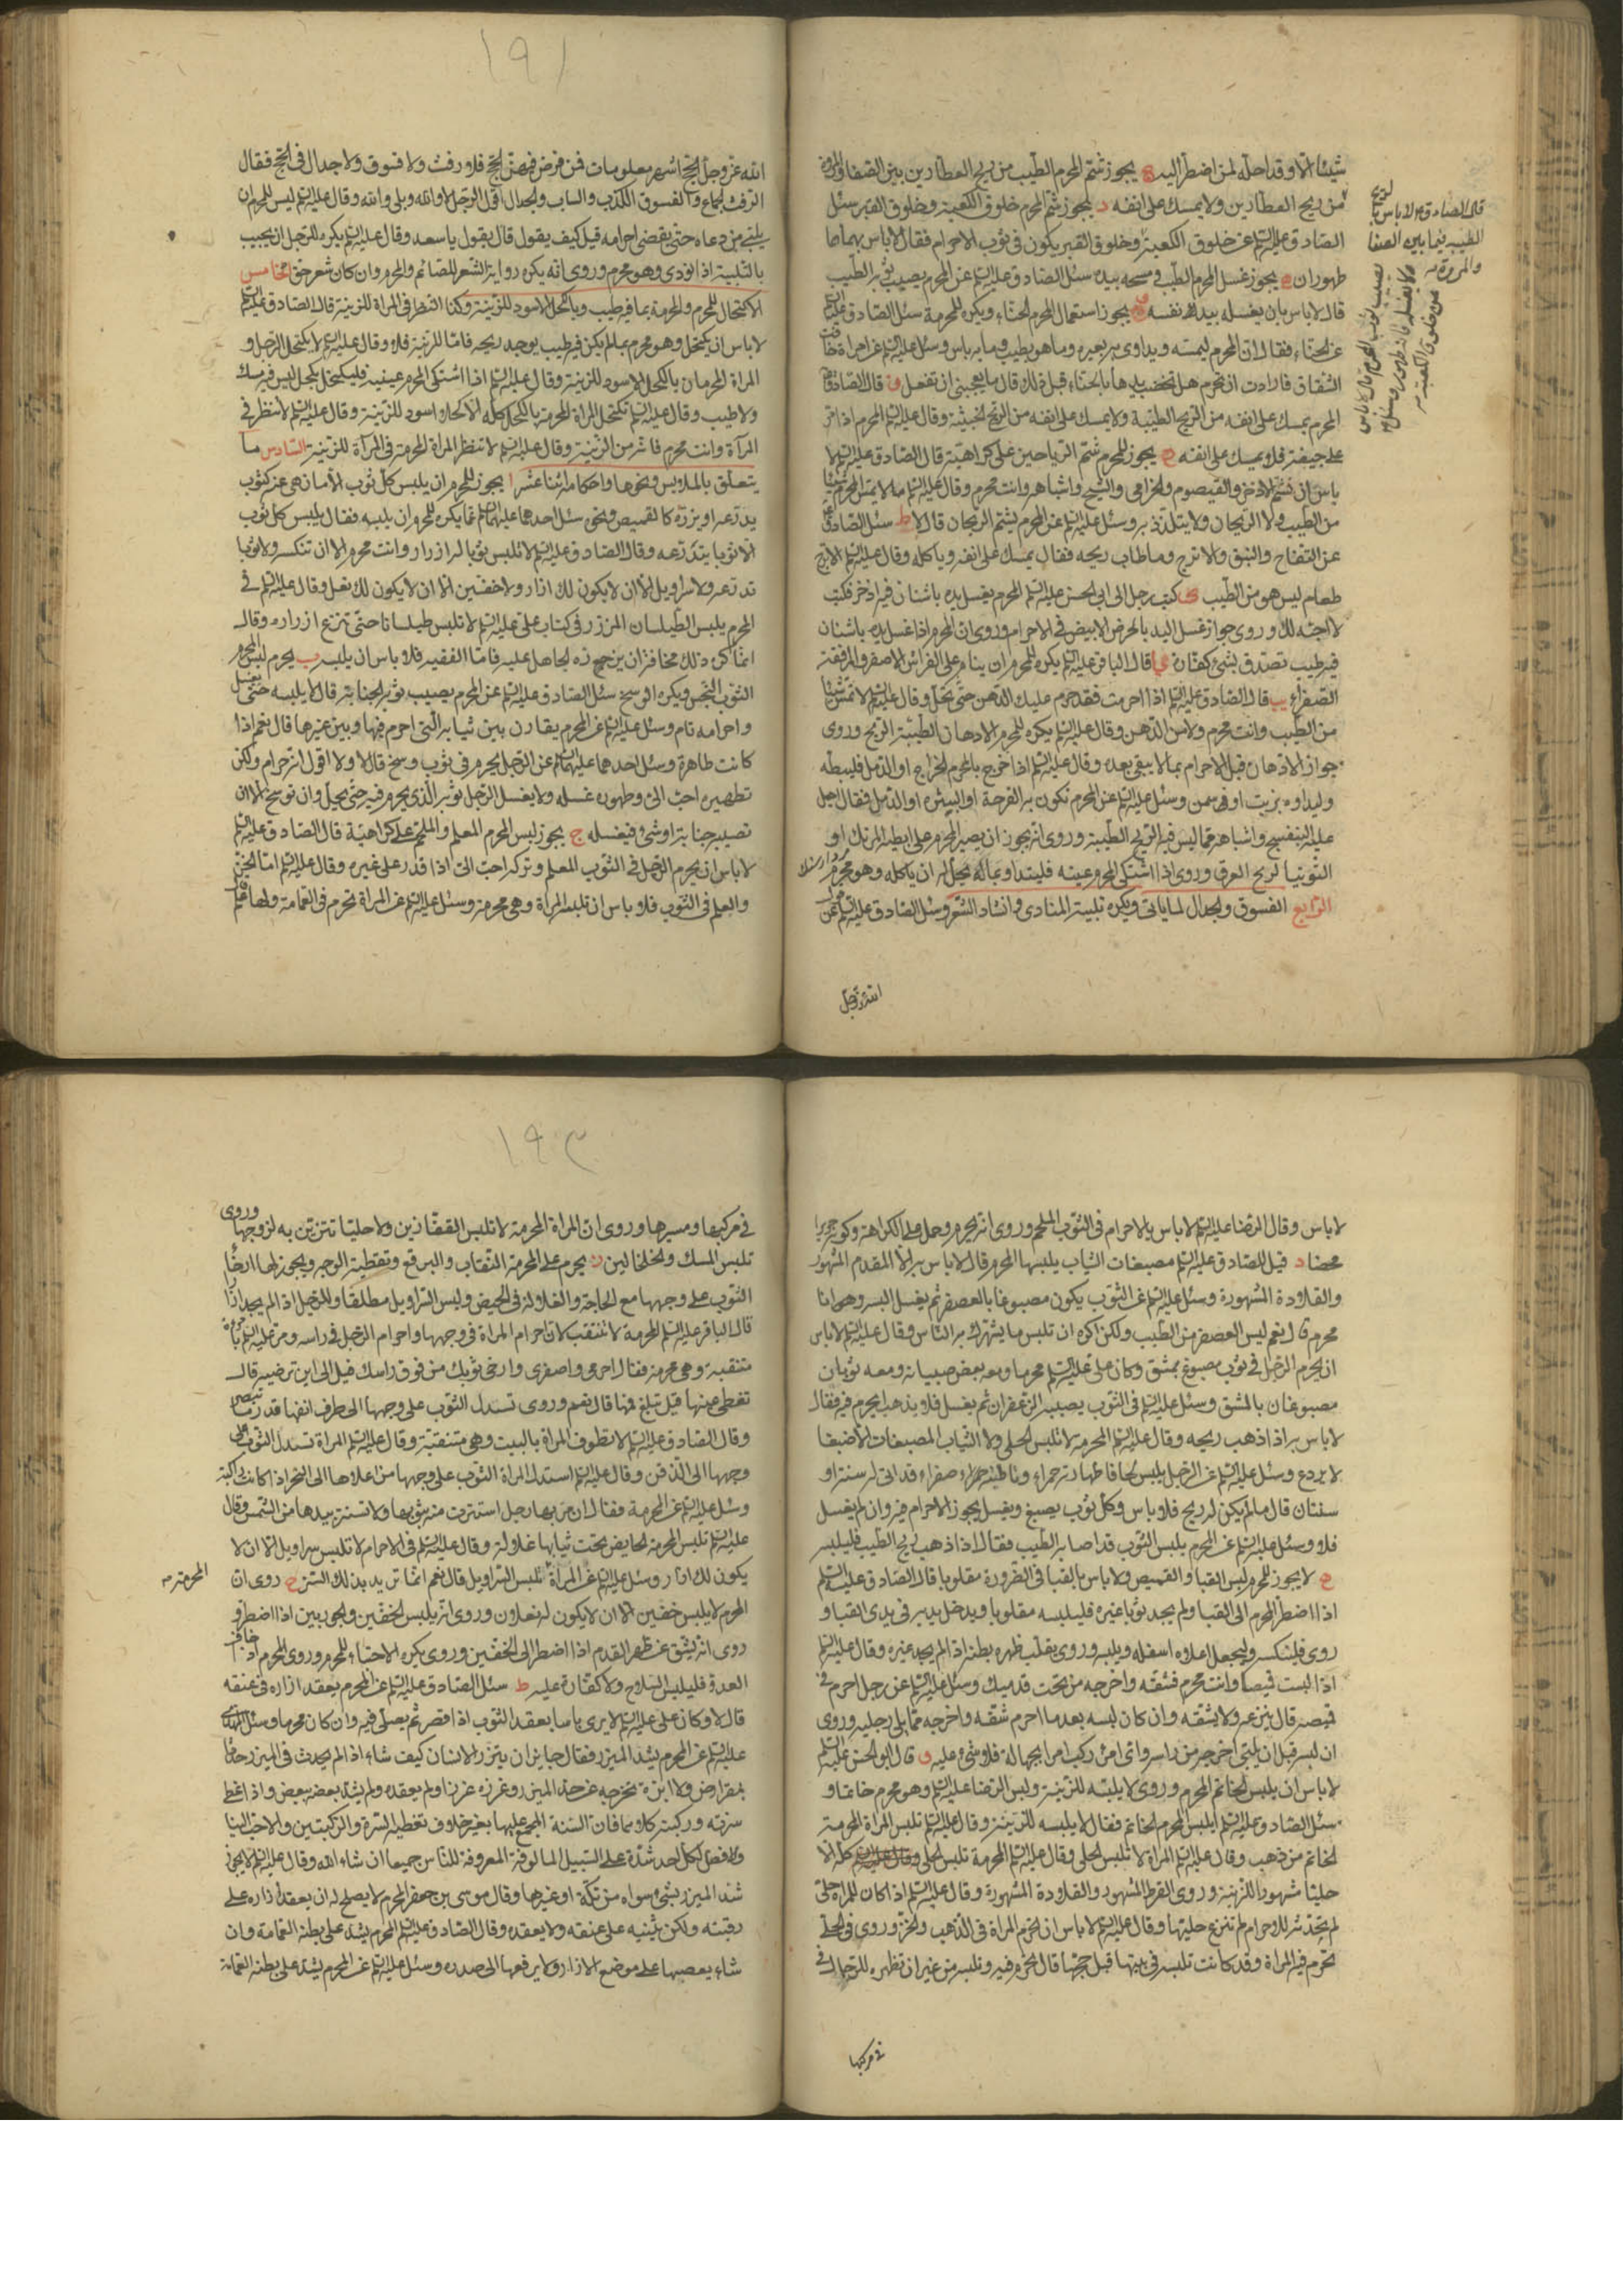 شيئا الا وقد احله لمن اضطر اليه ج يجوز شم المحرم الطيب من ريح العطارين بين الصفا والمروة
من ريح العطارين ولا يمسك على انفه د يجوز شم المحرم خلوق الكعبة وخلوق القبر سئل
الصادق عليه السلم عن خلوق الكعبة وخلوق القبر يكون في ثوب الاحرام فقال لا باس بهما هما
طهوران ه يجوز غسل المحرم الطيب ومسحه بيده سئل الصادق عليه السلم عن المحرم يصيب ثوبه الطيب
قال لا باس بان يغسله بيد نفسه و يجوز استعمال المحرم الحناء ويكره للمحرمة سئل الصادق عليه السلم
عن الحناء فقال ان المحرم ليمسه ويداوى به بعيره وما هو بطيب وما به باس وسئل عليه السلم عن امراة خافت
الشقاق فارادت ان تحرم هل تخضب يدها بالحناء قبل ذلك قال ما يعجبنى ان تفعل ز قال الصادق
المحرم يمسك على انفه من الريح الطيبة ولا يمسك على انفه من الريح الخبيثة وقال عليه السلم المحرم اذا مر
على جيفة فلا يمسك على انفه ح يجوز للمحرم شم الرياحين على كراهية قال الصادق عليه السلم لا
باس ان تشم الاذخر والقيصوم والخزامى والشيح واشباهه وانت محرم وقال عليه السلم لا يمس المحرم شيئا
من الطيب ولا الريحان ولا يتلذذ به وسئل عليه السلم عن المحرم يشم الريحان قال لا ط سئل الصادق
عن التفاح والنبق والاترج وما طاب ريحه فقال يمسك على انفه وياكله وقال عليه السلم الاترج
طعام ليس هو من الطيب ى كتب رجل الى ابى الحسن عليه السلم المحرم يغسل يده باشنان فيه اذخر فكتب
لا احبه لك وروى جواز غسل اليد بالحرض الابيض في الاحرام وروى ان المحرم اذا غسل يده باشنان
فيه طيب تصدق بشئ كفارة يا قال الباقر عليه السلم يكره للمحرم ان ينام على الفراش الاصفر والمرفقة
الصفراء يب قال الصادق عليه السلم اذا احرمت فقد حرم عليك الدهن حتى تحل وقال عليه السلم لا تمس شيئا
من الطيب وانت محرم ولا من الدهن وقال عليه السلم يكره للمحرم الادهان الطيبة الريح وروى
جواز الادهان قبل الاحرام بما لا يبقى بعده وقال عليه السلم اذا خرج بالمحرم الخراج او الدمل فليبطه
وليداوه بزيت او سمن وسئل عليه السلم عن المحرم تكون به القرحة او البثرة او الدمل فقال اجعل
عليه البنفسج واشباهه مما ليس فيه الريح الطيبة وروى انه يجوز ان يصير المحرم على ابطيه المرتك او
التوتيا لريح العرق وروى اذا اشتكى المحرم عينه فليتداو بما له يحل ان ياكله وهو محرم
الرابع الفسوق والجدال لما ياتي ويكره تلبية المنادى وانشاد الشعر وسئل الصادق عليه السلم عن
الله عز وجل
قال الصادق ع لا باس بالريح
الطيبة فيما بين الصفا
والمروة
الله عز وجل الحج اشهر معلومات فمن فرض فيهن الحج فلا رفث ولا فسوق ولا جدال في الحج فقال
الرفث الجماع والفسوق الكذب والسباب والجدال قول الرجل لا والله وبلى والله وقال عليه السلم ليس للمحرم ان
يلبى من دعاه حتى يقضى احرامه قيل كيف يقول قال يقول يا سعد وقال عليه السلم يكره للرجل ان يجيب
بالتلبية اذا نودى وهو محرم وروى انه يكره رواية الشعر للصائم والمحرم وان كان شعر حق الخامس
الاكتحال للمحرم والمحرمة بما فيه طيب وبالكحل الاسود للزينة وكذا النظر في المراة للزينة قال الصادق عليه السلم
لا باس ان يكتحل وهو محرم بما لم يكن فيه طيب يوجد ريحه فاما للزينة فلا وقال عليه السلم لا يكتحل الرجل و
المراة المحرمان بالكحل الاسود للزينة وقال عليه السلم اذا اشتكى المحرم عينيه فليكتحل بكحل ليس فيه مسك
ولا طيب وقال عليه السلم تكتحل المراة المحرمة بالكحل كله الا كحلا اسود للزينة وقال عليه السلم لا تنظر في
المرآة وانت محرم فانه من الزينة وقال عليه السلم لا تنظر المراة المحرمة في المرآة للزينة السادس ما
يتعلق بالملابس ونحوها واحكامه اثنا عشر ا يجوز للمحرم ان يلبس كل ثوب الا ما نهى عنه كثوب
يدرعه او يزره كالقميص ونحوه سئل احدهما عليهما السلم عما يكره للمحرم ان يلبسه فقال يلبس كل ثوب
الا ثوبا يتدرعه وقال الصادق عليه السلم لا تلبس ثوبا له ازرار وانت محرم الا ان تنكسه ولا ثوبا
تدرعه ولا سراويل الا ان لا يكون لك ازار ولا خفين الا ان لا يكون لك نعل وقال عليه السلم في
المحرم يلبس الطيلسان المزرر في كتاب على عليه السلم لا تلبس طيلسانا حتى تنزع ازراره وقال
انما كره ذلك مخافة ان يزره الجاهل عليه فاما الفقيه فلا باس ان يلبسه ب يحرم لبس المحرم
الثوب النجس ويكره الوسخ سئل الصادق عليه السلم عن المحرم يصيب ثوبه الجنابة قال لا يلبسه حتى يغسل
واحرامه تام وسئل عليه السلم عن المحرم يقارن بين ثيابه التى احرم فيها وبين غيرها قال نعم اذا
كانت طاهرة وسئل احدهما عليهما السلم عن الرجل يحرم في ثوب وسخ قال لا ولا اقول انه حرام ولكن
تطهيره احب الى وطهوره غسله ولا يغسل الرجل ثوبه الذي يحرم فيه حتى يحل وان توسخ الا ان
تصيبه جنابة او شئ فيغسله ج يجوز لبس المحرم المعلم والملحم على كراهية قال الصادق عليه السلم
لا باس ان يحرم الرجل في الثوب المعلم وتركه احب الى اذا قدر على غيره وقال عليه السلم اما الخز
والعلم في الثوب فلا باس ان تلبسه المراة وهي محرمة وسئل عليه السلم عن المراة تحرم في العمامة ولها علم قال
لا باس وقال الرضا عليه السلم لا باس بالاحرام في الثوب الملحم وروى انه يحرم وحمل على الكراهة وكونه حريرا
محضا د قيل للصادق عليه السلم مصبغات الثياب يلبسها المحرم قال لا باس به الا المقدم المشهور
والقلادة المشهورة وسئل عليه السلم عن الثوب يكون مصبوغا بالعصفر ثم يغسل البسه وهو انا
محرم قال نعم ليس العصفر من الطيب ولكن اكره ان تلبس ما يشهرك به الناس وقال عليه السلم لا باس
ان يحرم الرجل في ثوب مصبوغ بمشق وكان على عليه السلم محرما ومعه بعض صبيانه ومعه ثوبان
مصبوغان بالمشق وسئل عليه السلم في الثوب يصيبه الزعفران ثم يغسل فلا يذهب ايحرم فيه فقال
لا باس به اذا ذهب ريحه وقال عليه السلم المحرمة لا تلبس الحلى ولا الثياب المصبغات الا صبغا
لا يردع وسئل عليه السلم عن الرجل يلبس لحافا ظهارته حمراء وبطانته صفراء قد اتى له سنة او
سنتان قال ما لم يكن له ريح فلا باس وكل ثوب يصبغ ويغسل يجوز الاحرام فيه وان لم يغسل
فلا وسئل عليه السلم عن المحرم يلبس الثوب قد اصابه الطيب فقال اذا ذهب ريح الطيب فليلبسه
ه لا يجوز للمحرم لبس القبا والقميص ولا باس بالقبا في الضرورة مقلوبا قال الصادق عليه السلم
اذا اضطر المحرم الى القبا ولم يجد ثوبا غيره فليلبسه مقلوبا ولا يدخل يديه في يدى القبا و
روى فلينكسه وليجعل اعلاه اسفله ويلبسه وروى يقلب ظهره بطنه اذا لم يجد غيره وقال عليه السلم
اذا لبست قميصا وانت محرم فشقه واخرجه من تحت قدميك وسئل عليه السلم عن رجل احرم في
قميصه قال ينزعه ولا يشقه وان كان لبسه بعد ما احرم شقه واخرجه مما يلى رجليه وروى
ان لبسه قبل ان يلبى اخرجه من راسه واى امرئ ركب امرا بجهالة فلا شئ عليه و قال ابو الحسن عليه السلم
لا باس ان يلبس الخاتم المحرم وروى لا يلبسه للزينة ولبس الرضا عليه السلم وهو محرم خاتما و
سئل الصادق عليه السلم ايلبس المحرم الخاتم فقال لا يلبسه للزينة وقال عليه السلم تلبس المراة المحرمة
الخاتم من ذهب وقال عليه السلم المراة لا تلبس الحلى وقال عليه السلم المحرمة تلبس الحلى كله الا
حليا مشهورا للزينة وروى القرط المشهور والقلادة المشهورة وقال عليه السلم اذا كان للمراة حلى
لم تحدثه للاحرام لم تنزع حليها وقال عليه السلم لا باس ان تحرم المراة في الذهب والخز وروى في الحلى
تحرم فيه المراة وقد كانت تلبسه في بيتها قبل حجها قال تحرم فيه وتلبسه من غير ان تظهره للرجال في
في مركبها
في مركبها ومسيرها وروى ان المراة المحرمة لا تلبس القفازين ولا حليا تتزين به لزوجها وروى
تلبس المسك والخلخالين ز يحرم على المحرمة النقاب والبرقع وتغطية الوجه ويجوز لها ارخاء
الثوب على وجهها مع الحاجة والغلالة في الحيض ولبس السراويل مطلقا وللرجل اذا لم يجد ازارا
قال الباقر عليه السلم المحرمة لا تتنقب لان احرام المراة في وجهها واحرام الرجل في راسه ومر عليه السلم بامراة
متنقبة وهي محرمة فقال احرمي واسفري وارخى ثوبك من فوق راسك قيل الى اين ترخيه قال
تغطى عينها قيل تبلغ فمها قال نعم وروى تسدل الثوب على وجهها الى طرف انفها قدر ما تبصر
وقال الصادق عليه السلم لا تطوف المراة بالبيت وهي متنقبة وقال عليه السلم المراة تسدل الثوب على
وجهها الى الذقن وقال عليه السلم تسدل المراة الثوب على وجهها من اعلاها الى النحر اذا كانت راكبة
وسئل عليه السلم عن المحرمة فقال ان مر بها رجل استترت منه بثوبها ولا تستتر بيدها من الشمس وقال
عليه السلم تلبس المحرمة الحايض تحت ثيابها غلالة وقال عليه السلم في الاحرام لا تلبس سراويل الا ان لا
يكون لك ازار وسئل عليه السلم عن المراة تلبس السراويل قال نعم انما تريد بذلك الستر ح روى ان
المحرم لا يلبس خفين الا ان لا يكون له نعلان وروى انه يلبس الخفين والجوربين اذا اضطر و
روى انه يشق عن ظهر القدم اذا اضطر الى الخفين وروى يكره الاحتباء للمحرم وروى المحرم اذا خاف
العدو فليلبس السلاح ولا كفارة عليه ط سئل الصادق عليه السلم عن المحرم يعقد ازاره في عنقه
قال لا وكان على عليه السلم لا يرى باسا بعقد الثوب اذا قصر ثم يصلى فيه وان كان محرما وسئل
عليه السلم عن المحرم يشد الميزر فقال جايز ان يتزر الانسان كيف شاء اذا لم يحدث في الميزر حدثا
بمقراض ولا ابرة يخرجه عن حد الميزر وغرزه غرزا ولم يعقده ولم يشد بعضه ببعض واذا غطى
سرته وركبته كلاهما فان السنة المجمع عليها بغير خلاف تغطية السرة والركبتين والاحب الينا
والافضل لكل احد شده على السبيل المالوفة المعروفة للناس جميعا ان شاء الله وقال عليه السلم لا يجوز
شد الميزر بشئ سواه من تكة او غيرها وقال موسى بن جعفر المحرم لا يصلح له ان يعقد ازاره على
رقبته ولكن يثنيه على عنقه ولا يعقده وقال الصادق عليه السلم المحرم يشد على بطنه العمامة وان
شاء يعصبها على موضع الازار ولا يرفعها الى صدره وسئل عليه السلم عن المحرم يشد على بطنه العمامة
المحرمة